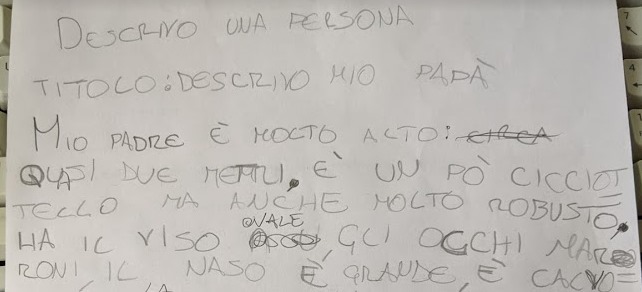 DESCRIVO UNA PERSONA
TITOLO: DESCRIVO MIO PADÀ
MIO PADRE È MOLTO ALTO:
QUASI DUE METRI. È UN PÒ CICCIOT
TELLO MA ANCHE MOLTO ROBUSTO,
HA IL VISO OVALE, GLI OCCHI MAR=
RONI IL NASO È GRANDE, È CALVO=